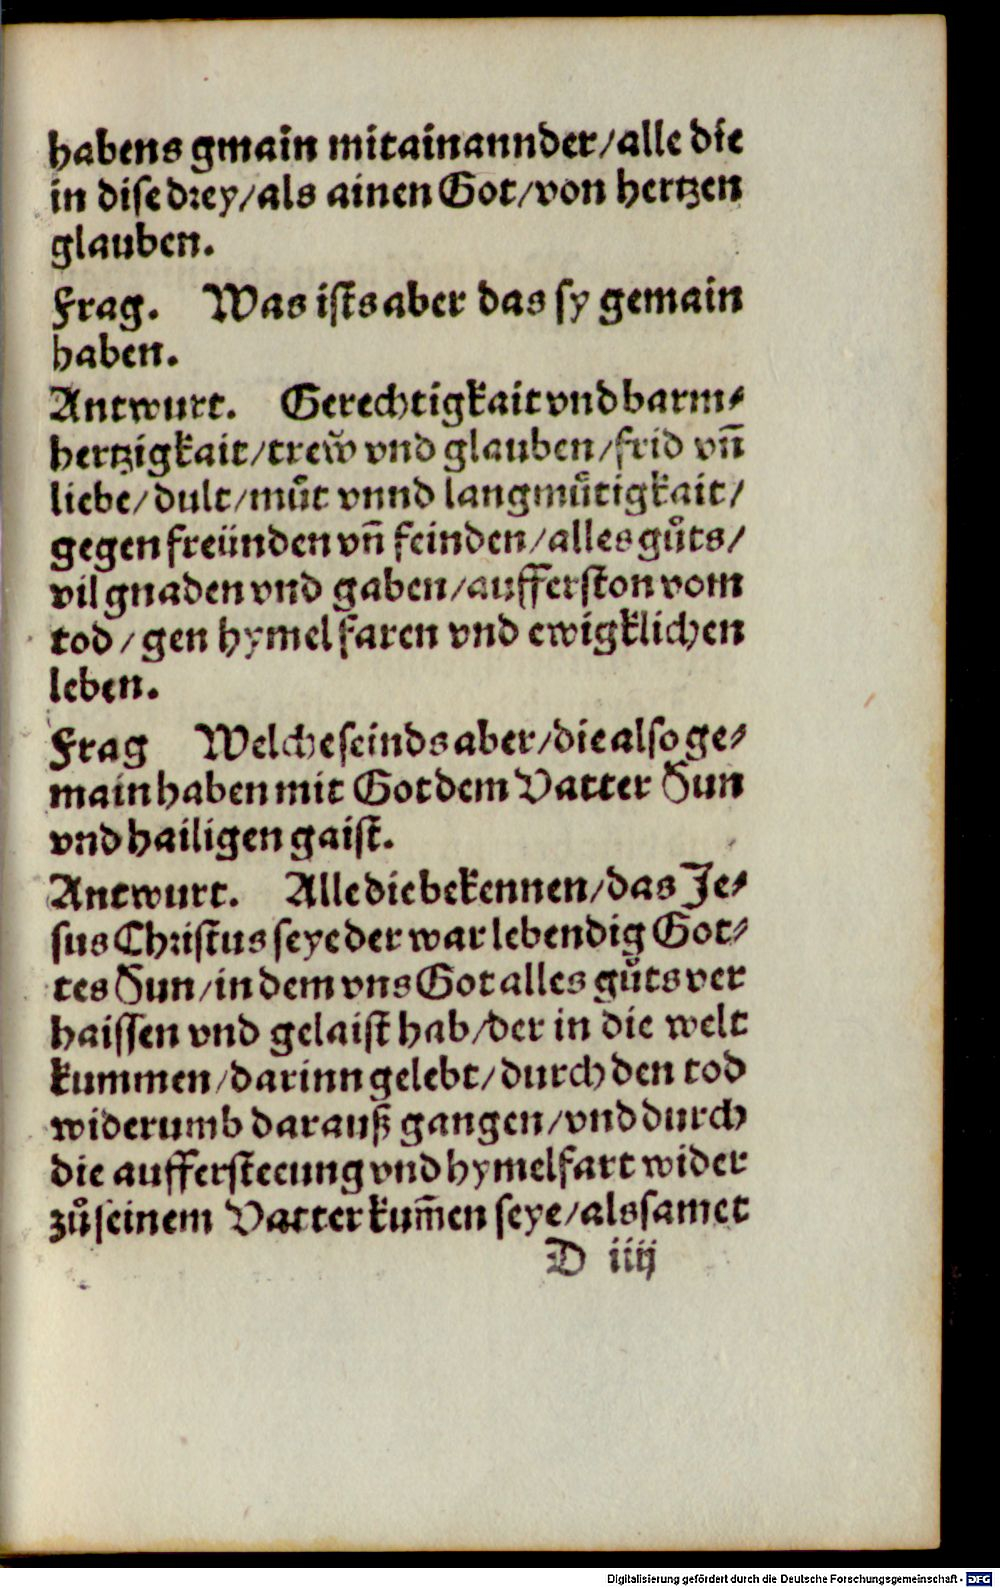 habens gmain mitainannder/alle die
in dise drey/als ainen Got/von hertzen
glauben.
Frag. Was ists aber das sy gemain
haben.
Antwurt. Gerechtigkait vnd barm⸗
hertzigkait/trew̆ vnd glauben/frid vn̄
liebe/dult/můt vnnd langmůtigkait/
gegen freünden vn̄ feinden/alles gůts/
vil gnaden vnd gaben/aufferston vom
tod/gen hymel faren vnd ewigklichen
leben.
Frag Welche seinds aber/die also ge⸗
main haben mit Got dem Vatter Sun
vnd hailigen gaist.
Antwurt. Alle die bekennen/das Je⸗
sus Christus seye der war lebendig Got⸗
tes Sun/in dem vns Got alles gůts ver
haissen vnd gelaist hab/der in die welt
kummen/darinn gelebt/durch den tod
widerumb darauß gangen/vnd durch
die auffersteeung vnd hymelfart wider
zů seinem Vatter kum̄en seye/als samet
D iiij
Digitalisierung gefördert durch die Deutsche Forschungsgemeinschaft - DFG